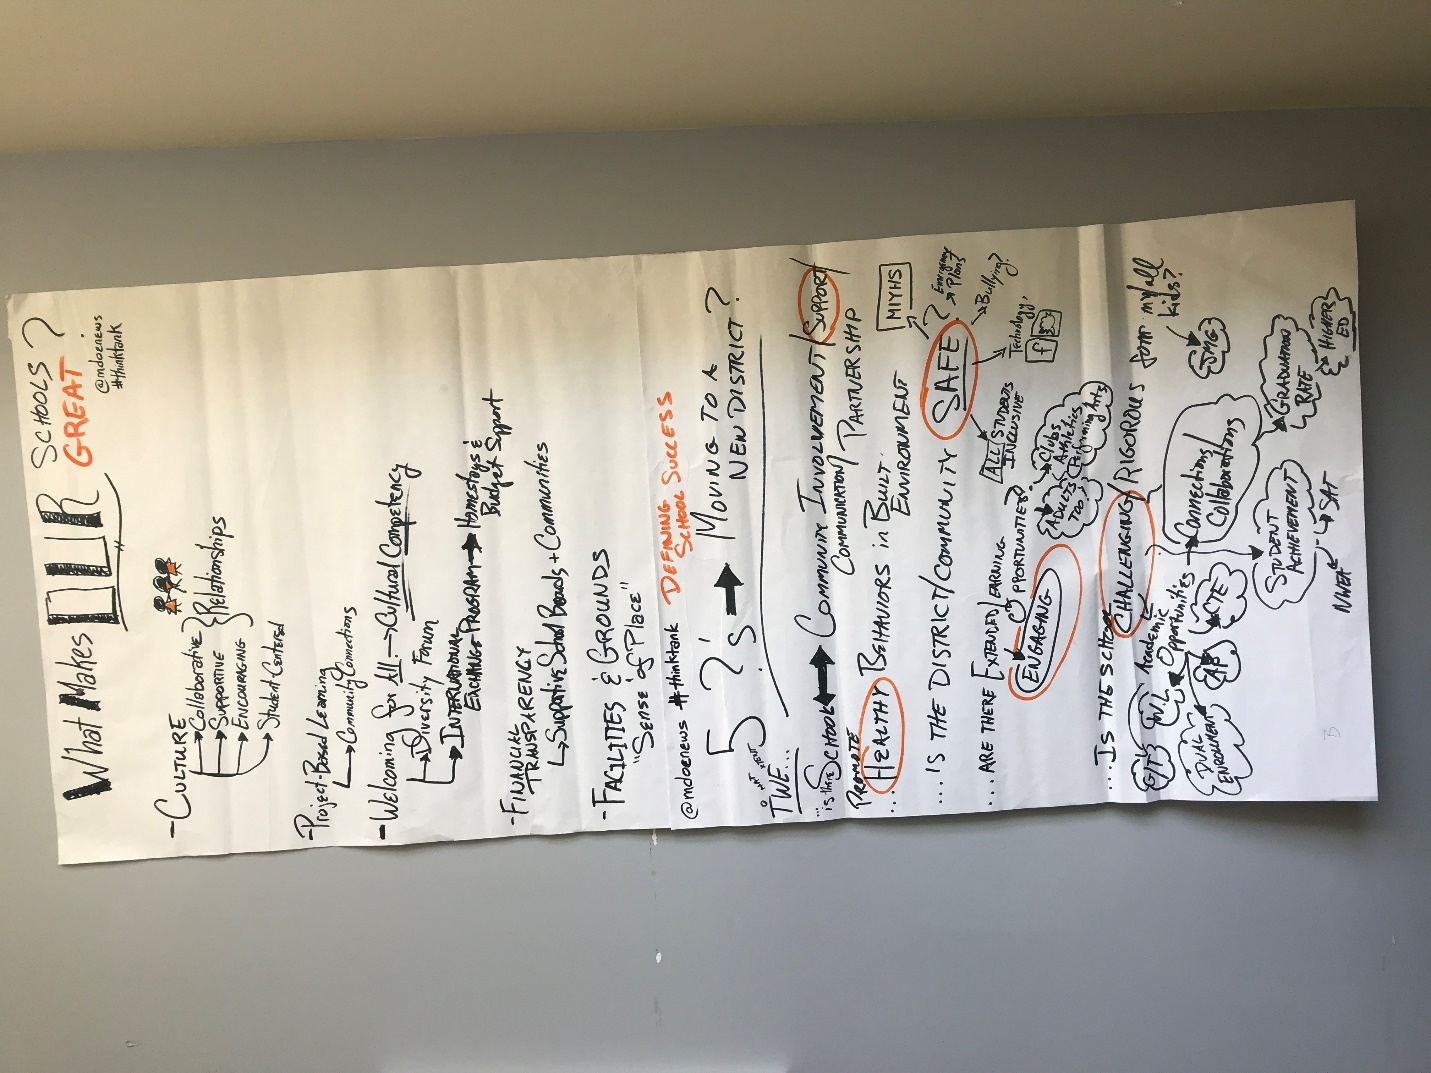 What Makes OUR SCHOOLS?
GREAT
@mdoenews
#thinktank
- CULTURE
Collaborative
Supportive
ENCOURAGING
Relationships
Student Centered
- Project-Based Learning
Community Connections
- Welcoming for All → Cultural Competency
Diversity Forum
INTERNATIONAL
EXCHANGE PROGRAM → Homestays &
Budget Support
- FINANCIAL
TRANSPARENCY
Supportive School Boards + Communities
- FACILITIES & GROUNDS
"Sense of Place"
@mdoenews #thinktank DEFINING
SCHOOL SUCCESS
5 ?'s → MOVING TO A
NEW DISTRICT?
... is there SCHOOL ↔ COMMUNITY INVOLVEMENT/SUPPORT/
COMMUNICATION/PARTNERSHIP
PROMOTE
... HEALTHY BEHAVIORS in BUILT
ENVIRONMENT
MIYHS
... IS THE DISTRICT/COMMUNITY SAFE?
Emergency
Plan?
Bullying?
Technology,
f
ALL STUDENTS
INCLUSIVE
... ARE THERE EXTENDED LEARNING
OPPORTUNITIES?
ENGAGING
Clubs
Athletics
Performing Arts
ADULTS
TOO!
... IS THE SCHOOL CHALLENGING/RIGOROUS for my/all
kids?
Academic
Opportunities
G/T
DUAL
ENROLLMENT
AP
CTE
Connections
Collaborations
STUDENT
ACHIEVEMENT
SAT
NWEA
GRADUATION
RATE
HIGHER
ED